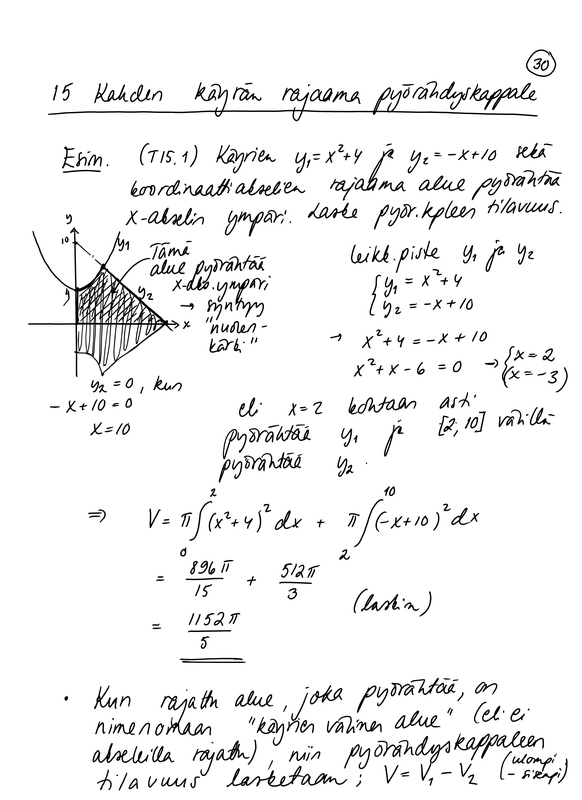 30
15 Kahden käyrän rajaama pyörähdyskappale
Esim. (T15.1) Käyrien y₁=x²+4 ja y₂=-x+10 sekä
koordinaattiakselien rajaama alue pyörähtää
x-akselin ympäri. Laske pyör.kpleen tilavuus.
y
10
y₁
4
y₂
x
Tämä
alue pyörähtää
x-aks. ympäri
→ syntyy
"nuolen-
kärki"
y₂=0, kun
-x+10=0
x=10
leikk.piste y₁ ja y₂
{y₁ = x²+4
y₂ = -x+10
→ x²+4 = -x+10
x²+x-6 = 0 → {x=2
(x=-3)
eli x=2 kohtaan asti
pyörähtää y₁ ja [2,10] välillä
pyörähtää y₂.
⇒ V = π∫₀²(x²+4)² dx + π∫₂¹⁰(-x+10)² dx
= 896π/15 + 512π/3
(laskin)
= 1152π/5
• Kun rajattu alue, joka pyörähtää, on
nimenomaan "käyrien välinen alue" (eli ei
akseleilla rajattu), niin pyörähdyskappaleen
tilavuus lasketaan; V = V₁ - V₂ (ulompi
- sisempi)